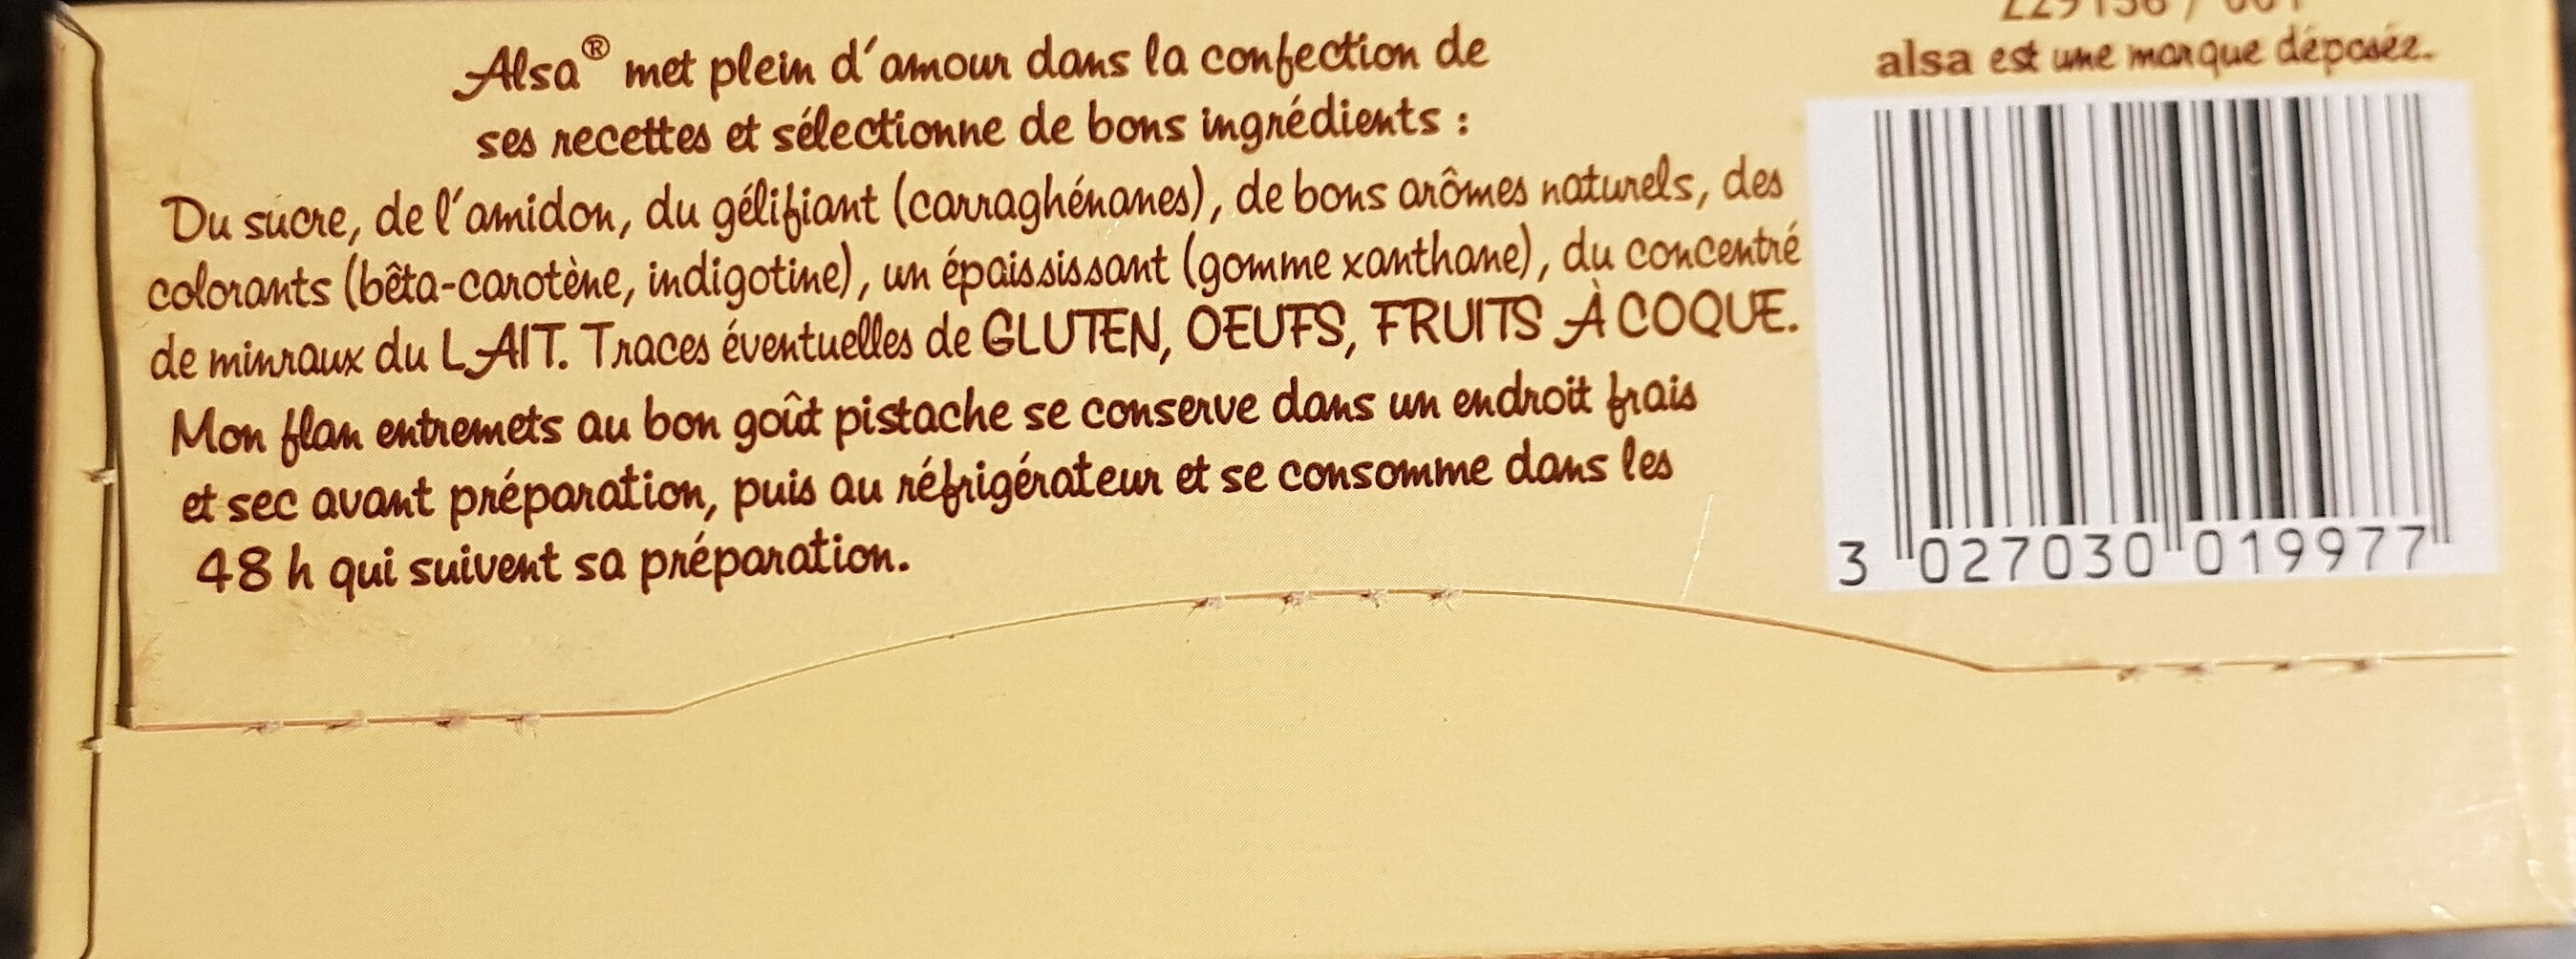 Alsa® met plein d'amour dans la confection de
ses recettes et sélectionne de bons ingrédients :
Du sucre, de l'amidon, du gélifiant (carraghénanes), de bons arômes naturels, des
colorants (bêta-carotène, indigotine), un épaississant (gomme xanthane), du concentré
de minraux du LAIT. Traces éventuelles de GLUTEN, OEUFS, FRUITS À COQUE.
Mon flan entremets au bon goût pistache se conserve dans un endroit frais
et sec avant préparation, puis au réfrigérateur et se consomme dans les
48 h qui suivent sa préparation.
alsa est une marque déposée.
3 027030 019977